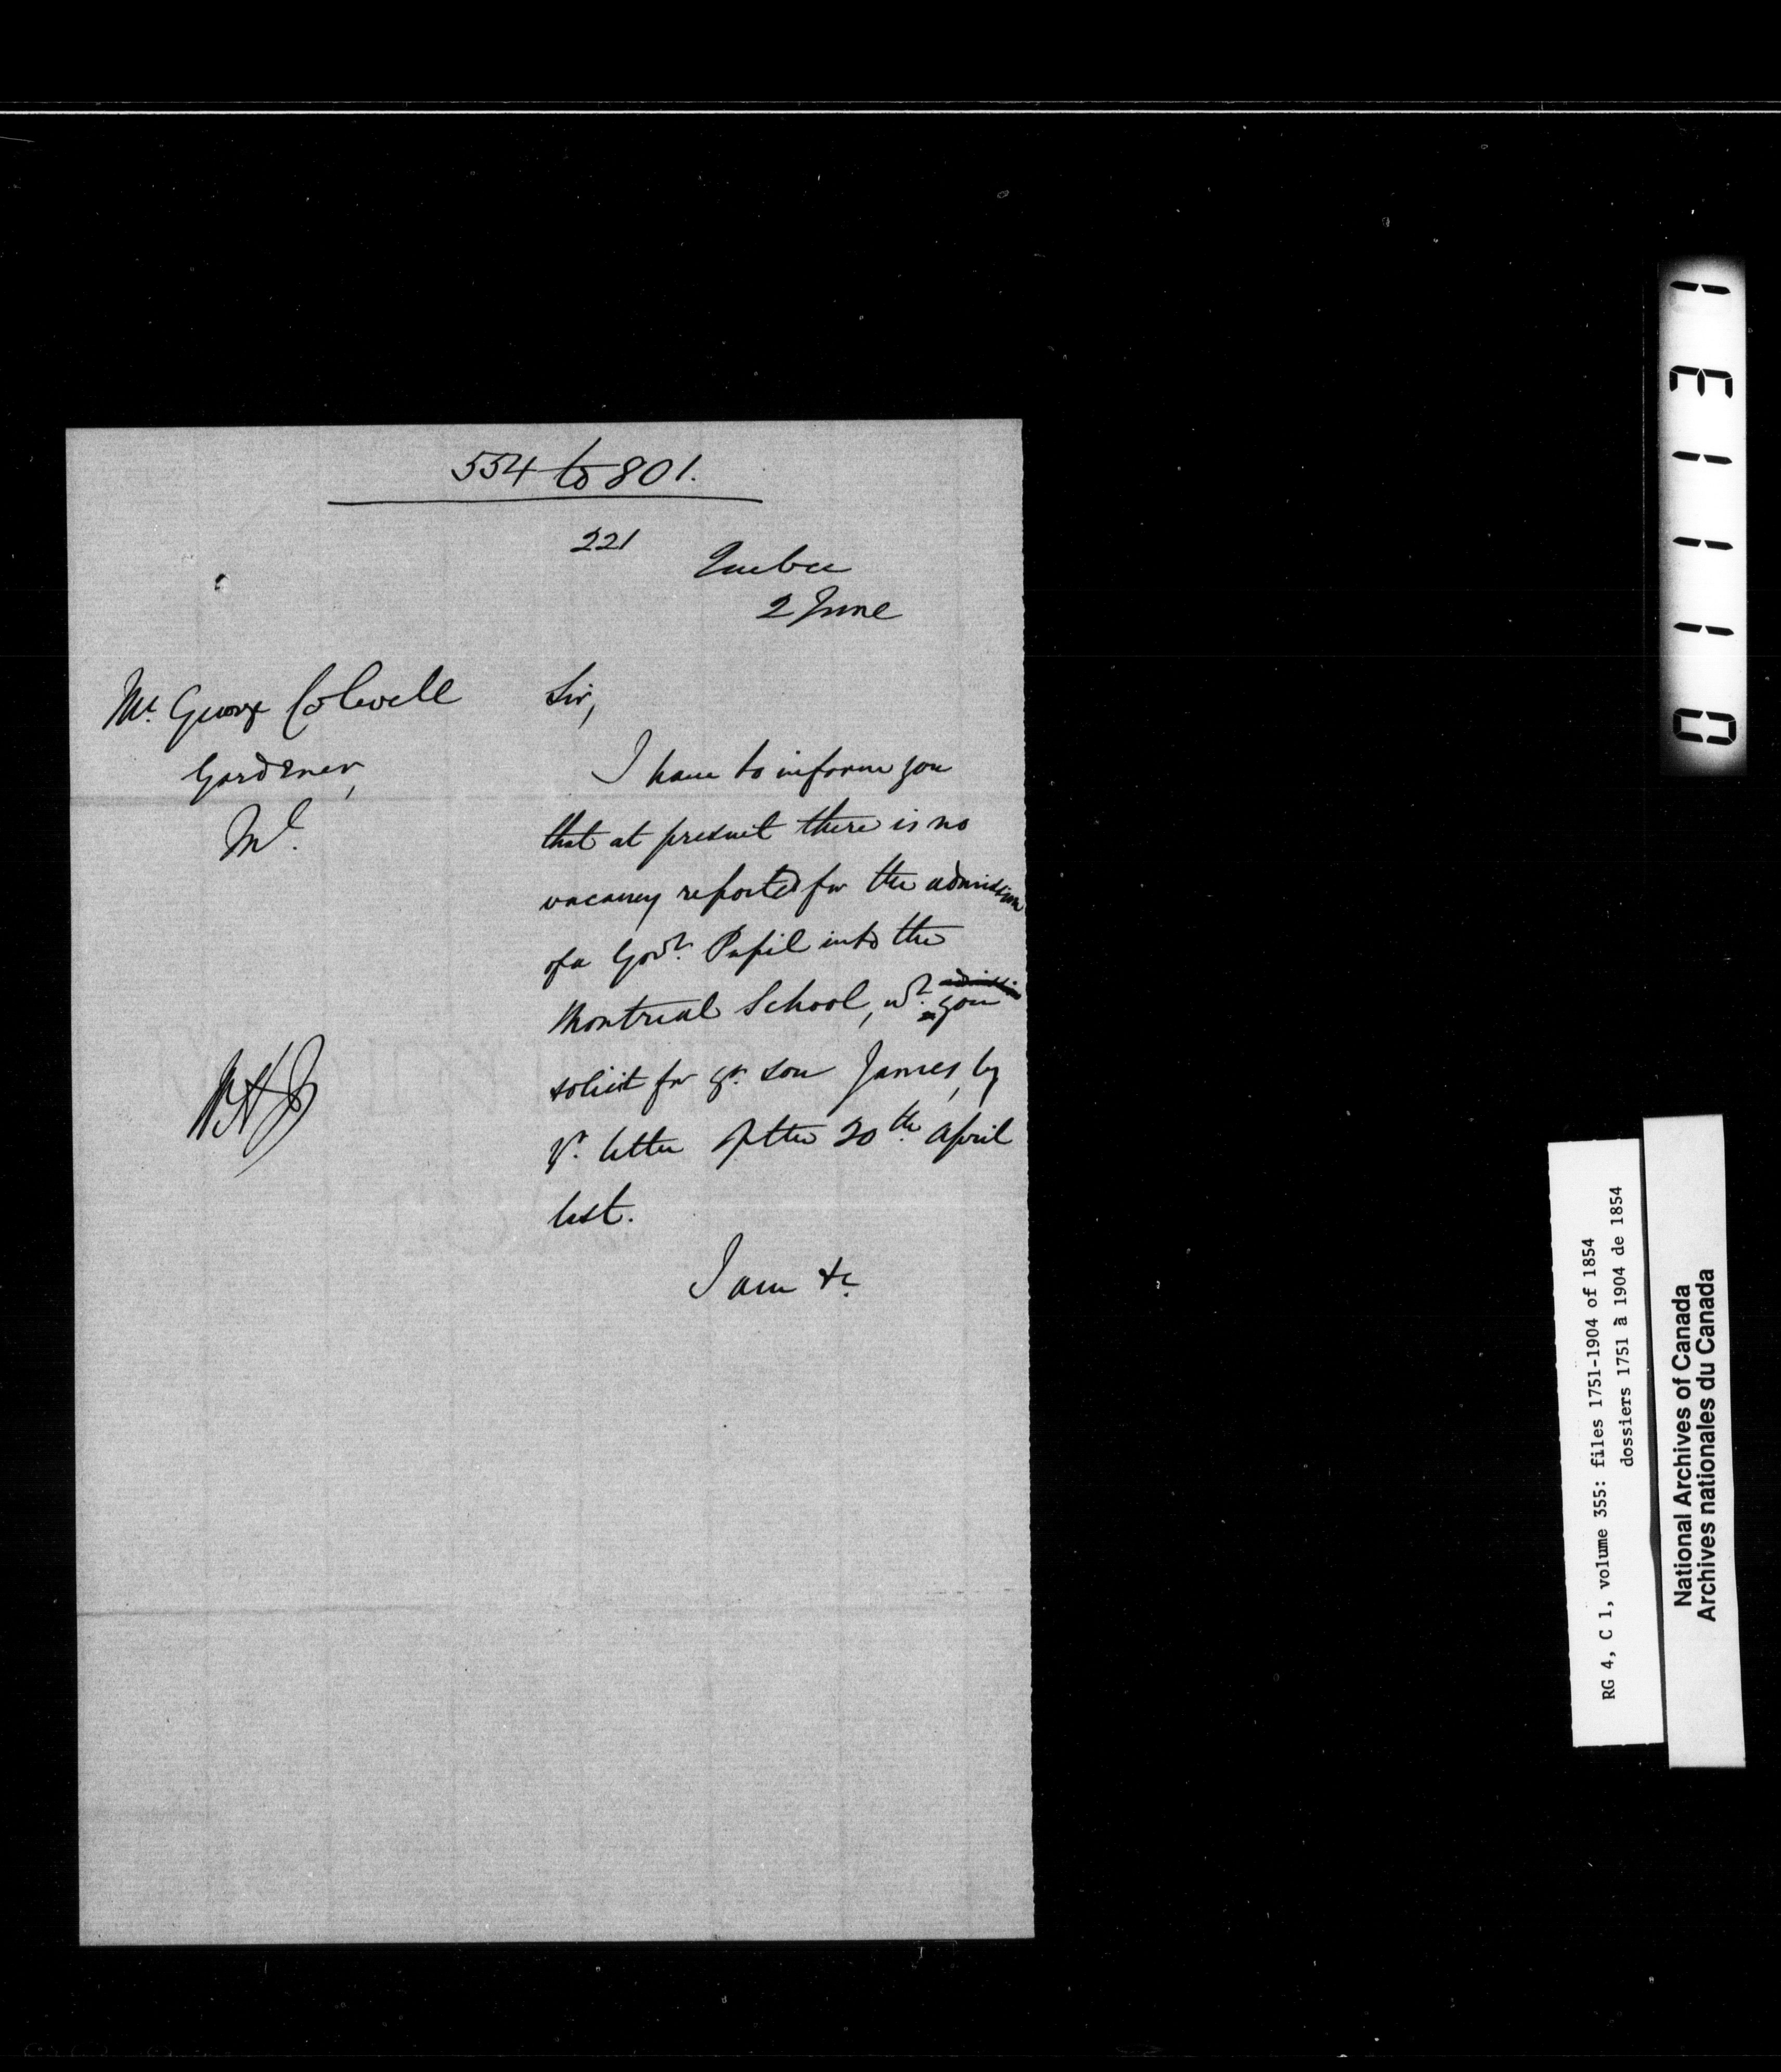 554 to 801.
221
Quebec
2 June
Mr. George Colwell
Gardener,
Ml.
Sir,
I have to inform you
that at present there is no
vacancy reported for the admission
of a Govt. Pupil into the
Montreal School, wh. you
solicit for yr. son James, by
yr. letter of the 20th April
last.
I am &c.
0111131
RG 4, C 1, volume 355: files 1751-1904 of 1854
dossiers 1751 à 1904 de 1854
National Archives of Canada
Archives nationales du Canada